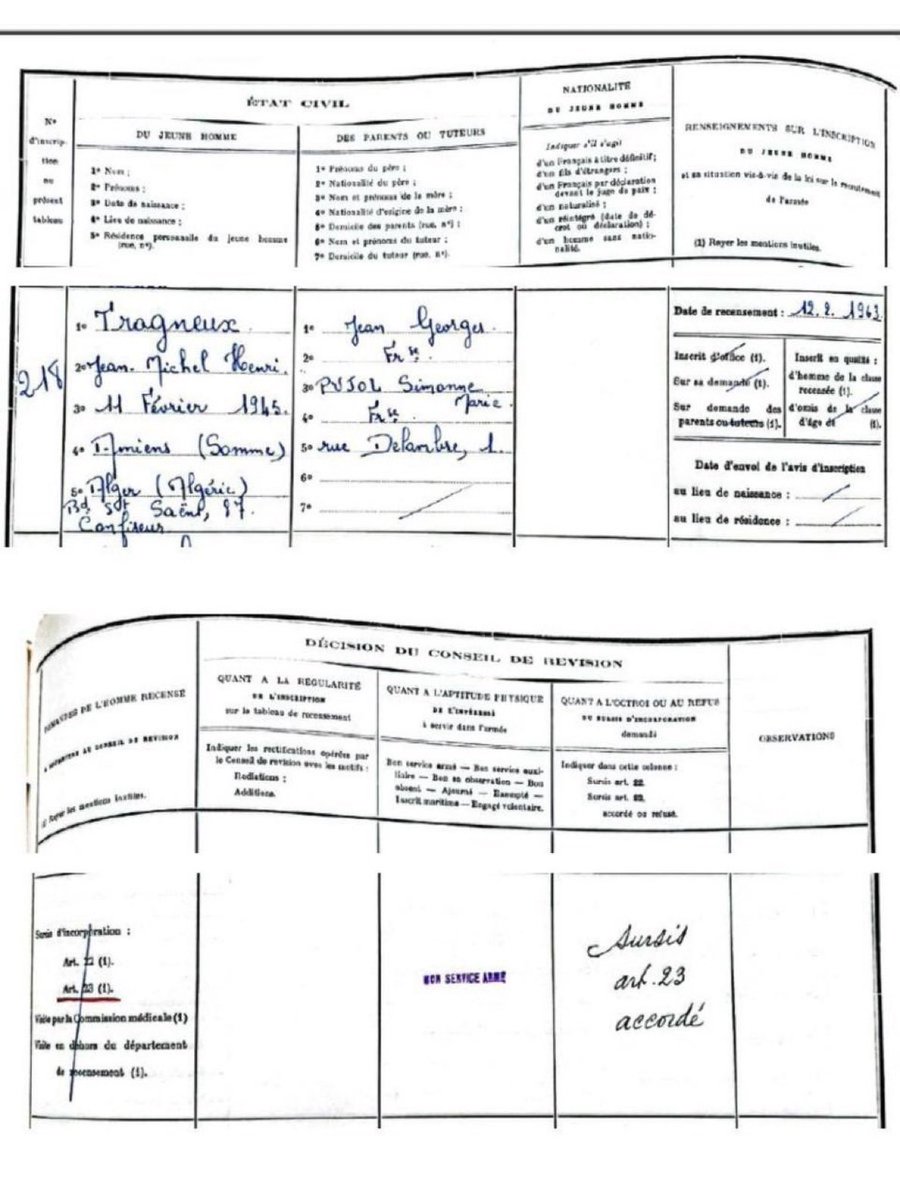 ÉTAT CIVIL
NATIONALITÉ
DU JEUNE HOMME
RENSEIGNEMENTS SUR L'INSCRIPTION
DU JEUNE HOMME
et sa situation vis-à-vis de la loi sur le recrutement
de l'armée
(1) Rayer les mentions inutiles.
No
d'inscrip-
tion
au
présent
tableau
DU JEUNE HOMME
1o Nom ;
2o Prénoms ;
3o Date de naissance ;
4o Lieu de naissance ;
5o Résidence personnelle du jeune homme
(rue, no).
DES PARENTS OU TUTEURS
1o Prénoms du père ;
2o Nationalité du père ;
3o Nom et prénoms de la mère ;
4o Nationalité d'origine de la mère ;
5o Domicile des parents (rue, no) ;
6o Nom et prénoms du tuteur ;
7o Domicile du tuteur (rue, no).
Indiquer s'il s'agit
d'un Français à titre définitif ;
d'un fils d'étrangers ;
d'un Français par déclaration
devant le juge de paix ;
d'un naturalisé ;
d'un réintégré (date de dé-
cret ou déclaration) ;
d'un homme sans natio-
nalité.
218
1o Tragneux
2o Jean-Michel Henri.
3o 11 Février 1945.
4o Amiens (Somme)
5o Alger (Algérie)
Bd Saëns, 87.
Confiseur
1o Jean Georges
2o Frse.
3o PUJOL Simonne
Marie
4o Frse
5o rue Delambre, 1.
6o
7o
Date de recensement : 12. 2. 1963
Inscrit d'office (1).
Sur sa demande (1).
Sur demande des
parents ou tuteurs (1).
Inscrit en qualité :
d'homme de la classe
recensée (1).
d'omis de la classe
d'âge de (1).
Date d'envoi de l'avis d'inscription
au lieu de naissance :
au lieu de résidence :
DÉCISION DU CONSEIL DE REVISION
DE L'HOMME RECENSÉ
AU CONSEIL DE REVISION
(1) Rayer les mentions inutiles.
QUANT A LA RÉGULARITÉ
DE L'INSCRIPTION
sur le tableau de recensement
Indiquer les rectifications opérées par
le Conseil de revision avec les motifs :
Radiations ;
Additions.
QUANT A L'APTITUDE PHYSIQUE
DE L'INTÉRESSÉ
à servir dans l'armée
Bon service armé — Bon service auxi-
liaire — Bon en observation — Bon
absent — Ajourné — Exempté —
Inscrit maritime — Engagé volontaire.
QUANT A L'OCTROI OU AU REFUS
DU SURSIS D'INCORPORATION
demandé
Indiquer dans cette colonne :
Sursis art. 22.
Sursis art. 23.
accordé ou refusé.
OBSERVATIONS
Sursis d'incorporation :
Art. 22 (1).
Art. 23 (1).
Visite par la Commission médicale (1)
Visite en dehors du département
de recensement (1).
BON SERVICE ARMÉ
Sursis
art. 23
accordé